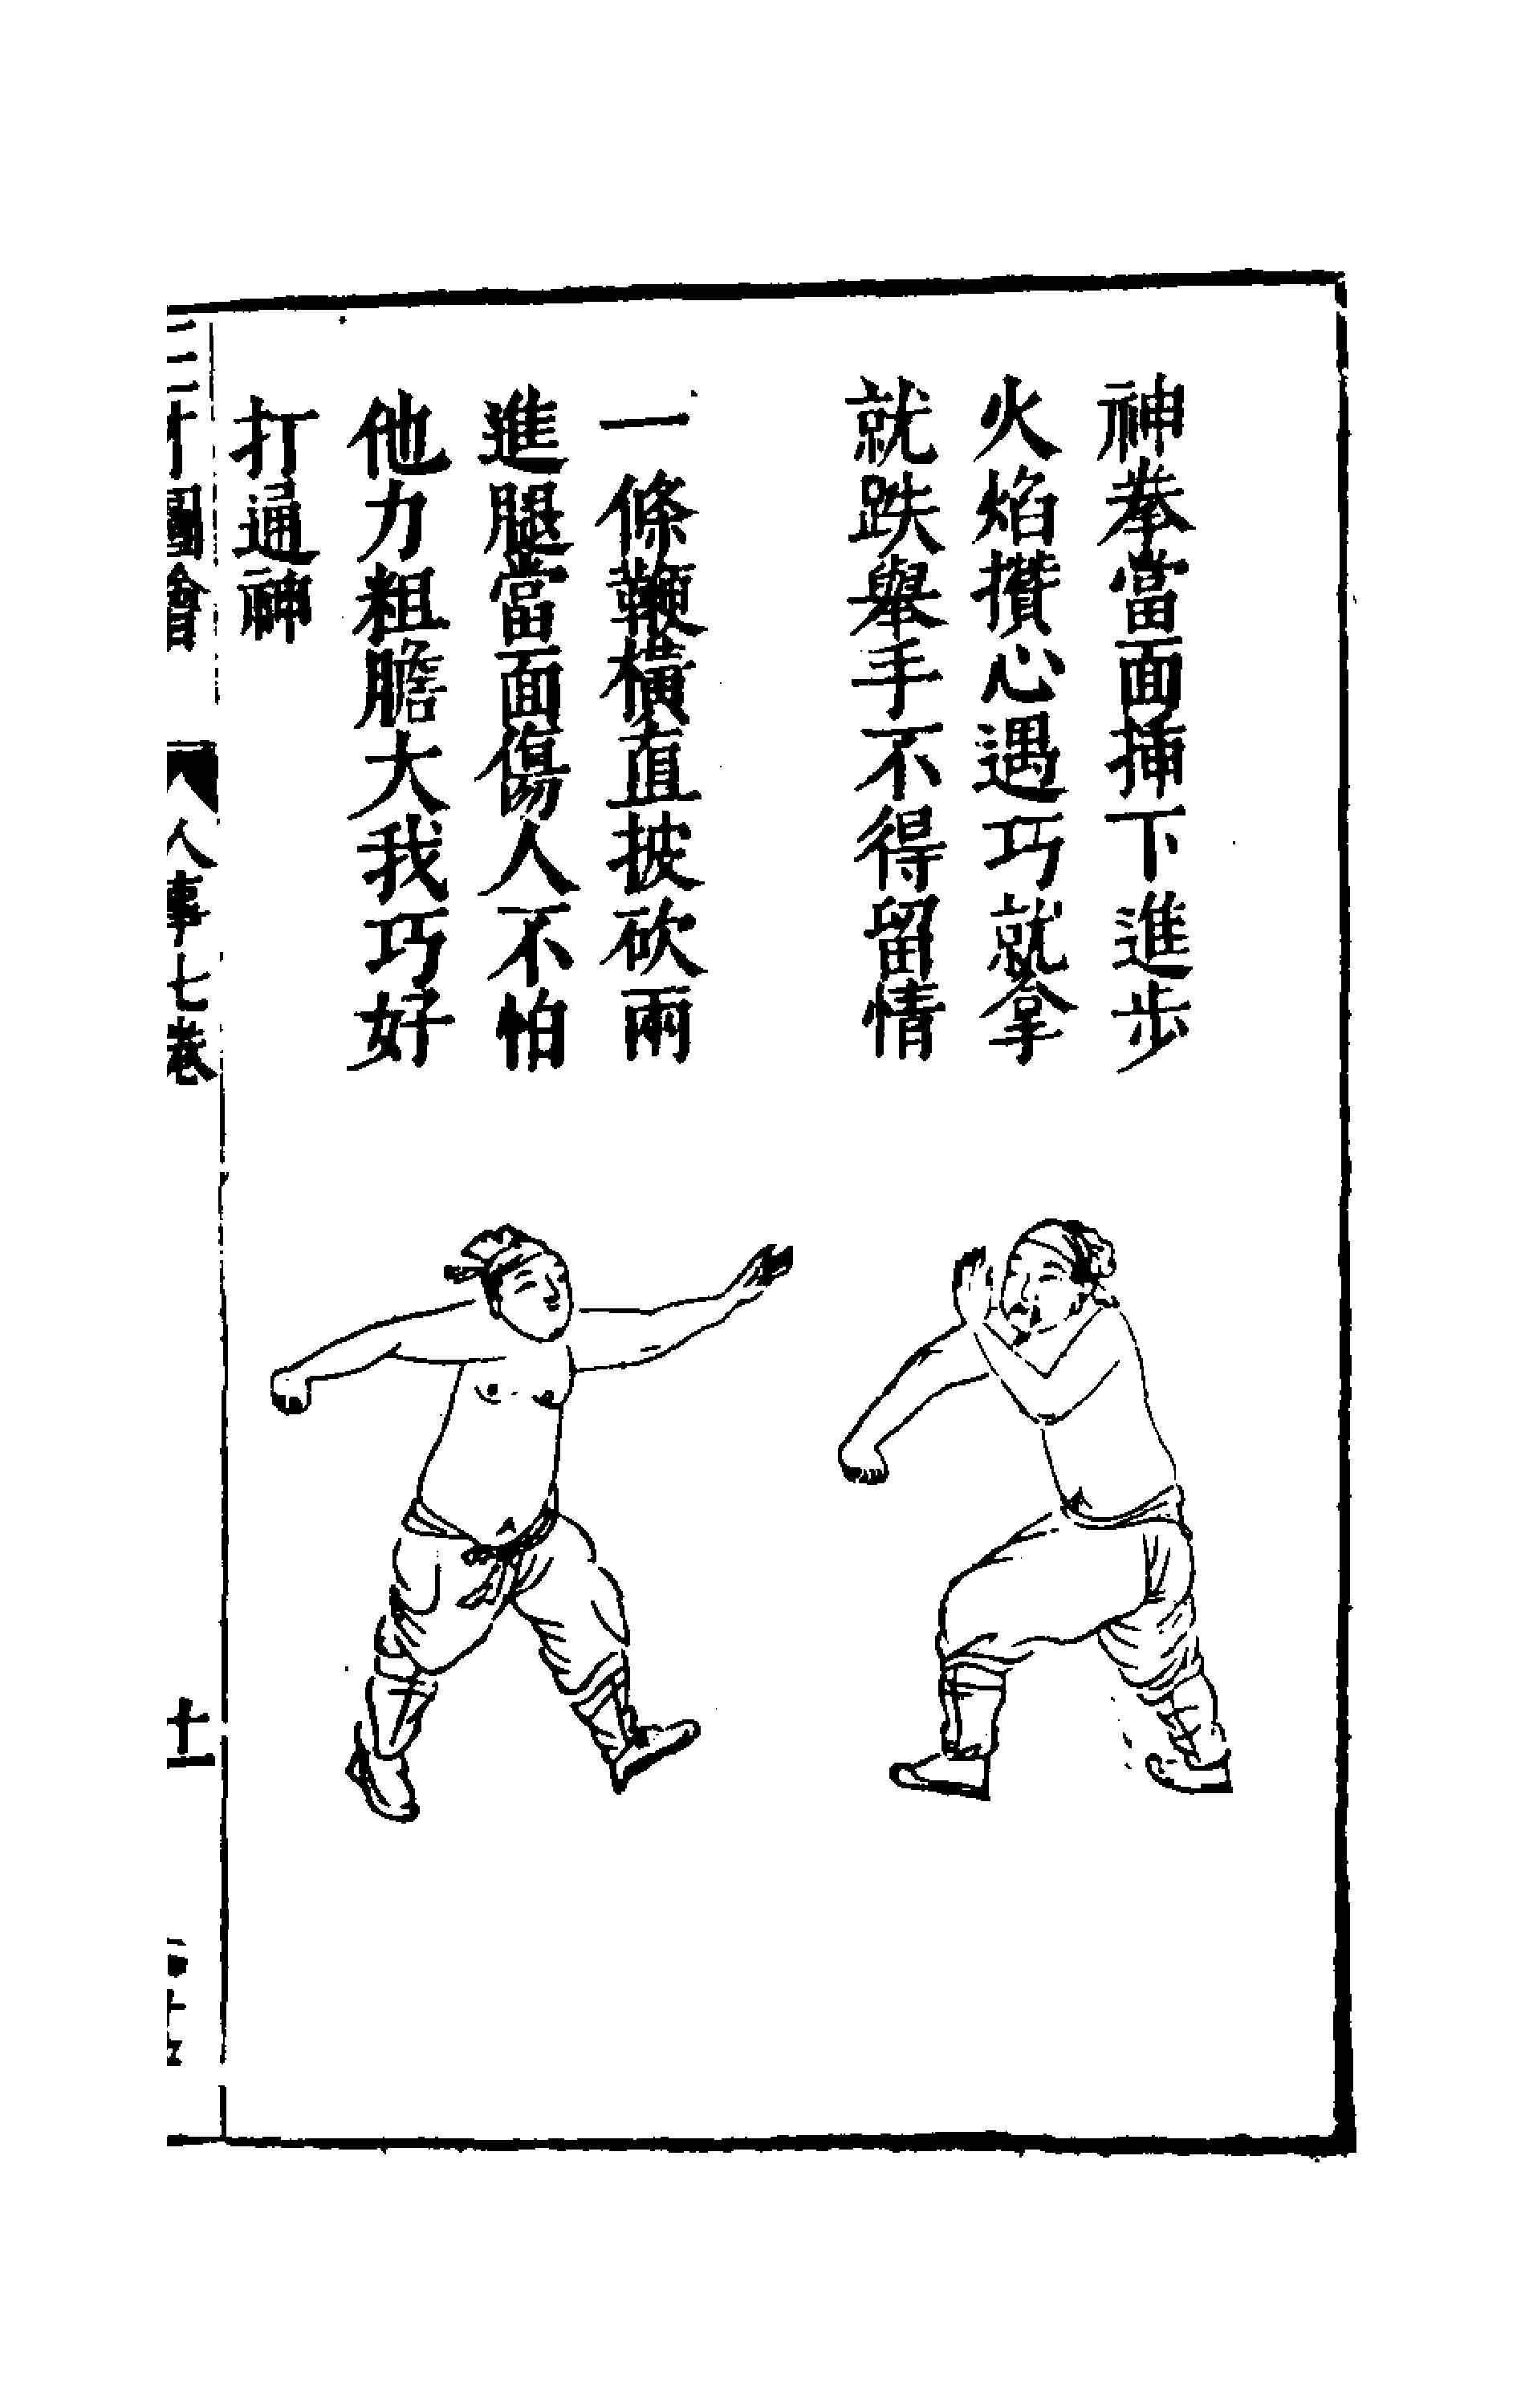 神拳當面揷下進步
火焰攢心遇巧就拿
就跌舉手不得留情
一條鞭橫直披砍兩
進腿當面傷人不怕
他力粗膽大我巧好
打通神
三才圖會
人事七卷
十一